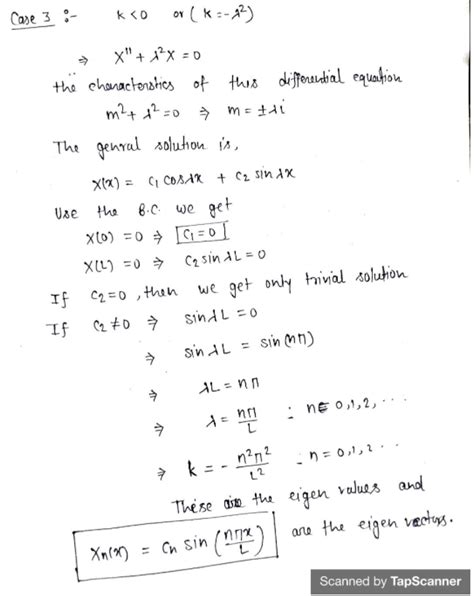 Case 3 :- k < 0 or (k = -λ²)
⇒ X'' + λ²X = 0
the characterstics of this differential equation
m² + λ² = 0 ⇒ m = ±λi
The genral solution is,
X(x) = C₁ cosλx + C₂ sinλx
Use the B.C. we get
X(0) = 0 ⇒ C₁ = 0
X(L) = 0 ⇒ C₂ sinλL = 0
If C₂ = 0, then we get only trivial solution
If C₂ ≠ 0 ⇒ sinλL = 0
⇒ sinλL = sin(nπ)
⇒ λL = nπ
⇒ λ = nπ/L : n∈ 0,1,2,...
⇒ k = - n²π²/L² : n = 0,1,2...
These are the eigen values and
Xn(x) = Cn sin(nπx/L) are the eigen vectors.
Scanned by TapScanner